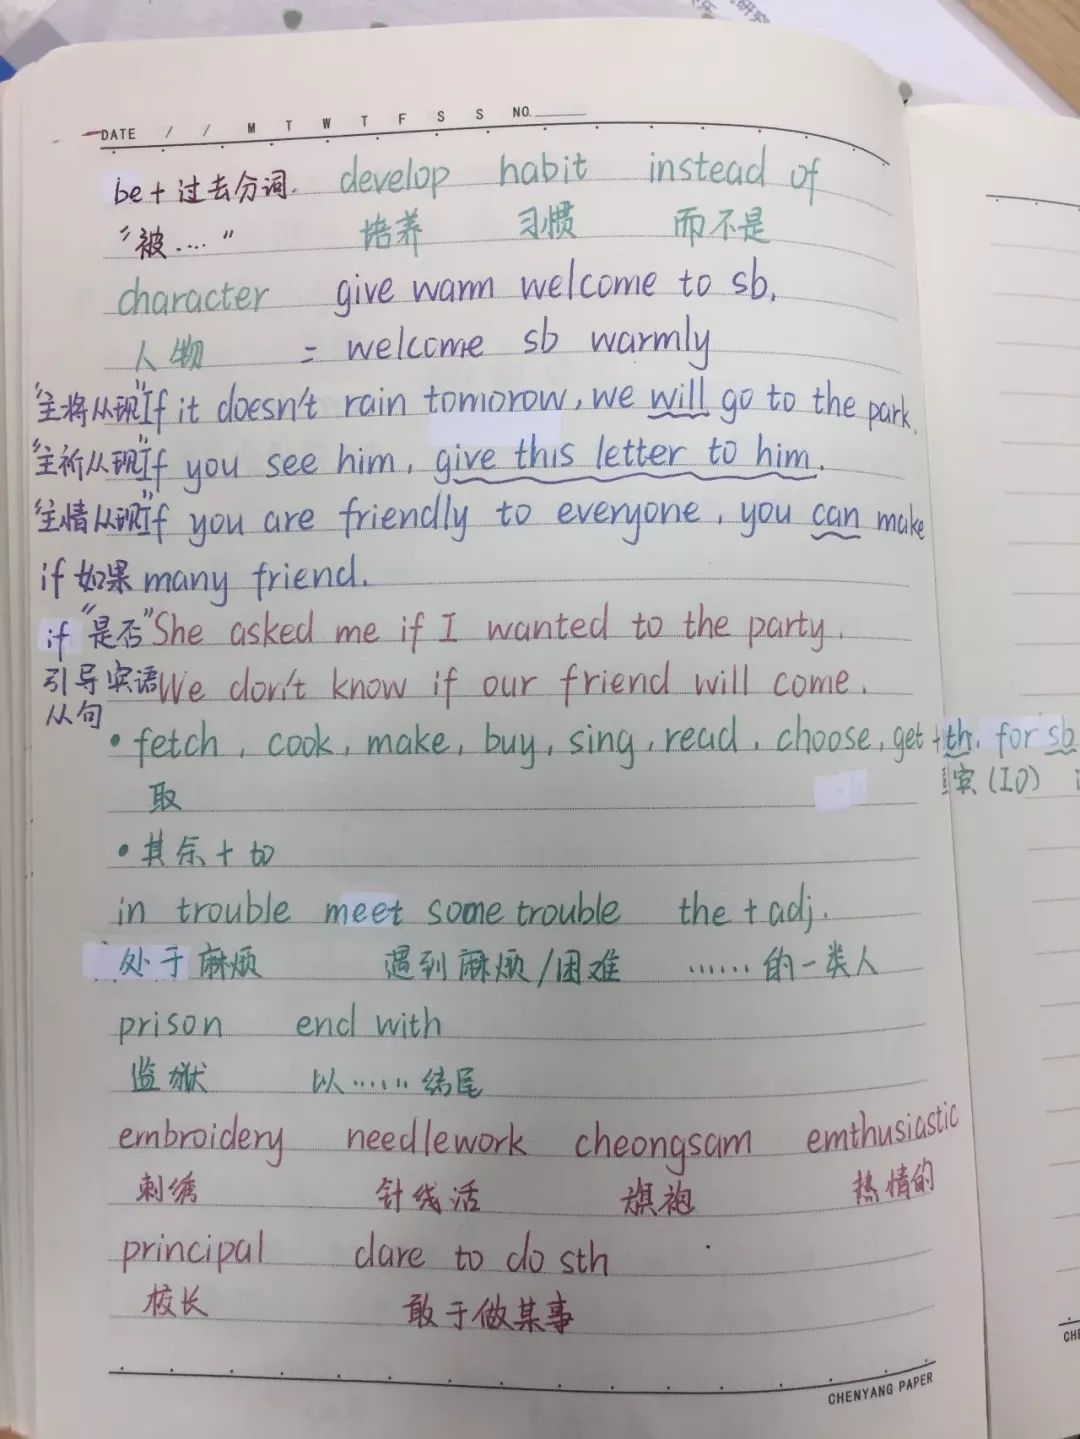 DATE / / M T W T F S S NO.
be + 过去分词. develop habit instead of
"被...." 培养 习惯 而不是
character give warm welcome to sb.
人物 = welcome sb warmly
"主将从现"If it doesn't rain tomorow, we will go to the park.
"主祈从现"If you see him, give this letter to him.
"主情从现"If you are friendly to everyone, you can make
if 如果 many friend.
if "是否"She asked me if I wanted to the party.
引导宾语We don't know if our friend will come.
从句
• fetch, cook, make, buy, sing, read, choose, get + th. for sb
取 宾(IO)
• 其余 + to
in trouble meet some trouble the + adj.
处于麻烦 遇到麻烦/困难 ......的一类人
prison end with
监狱 以......结尾
embroidery needlework cheongsam emthusiastic
刺绣 针线活 旗袍 热情的
principal dare to do sth
校长 敢于做某事
CHENYANG PAPER